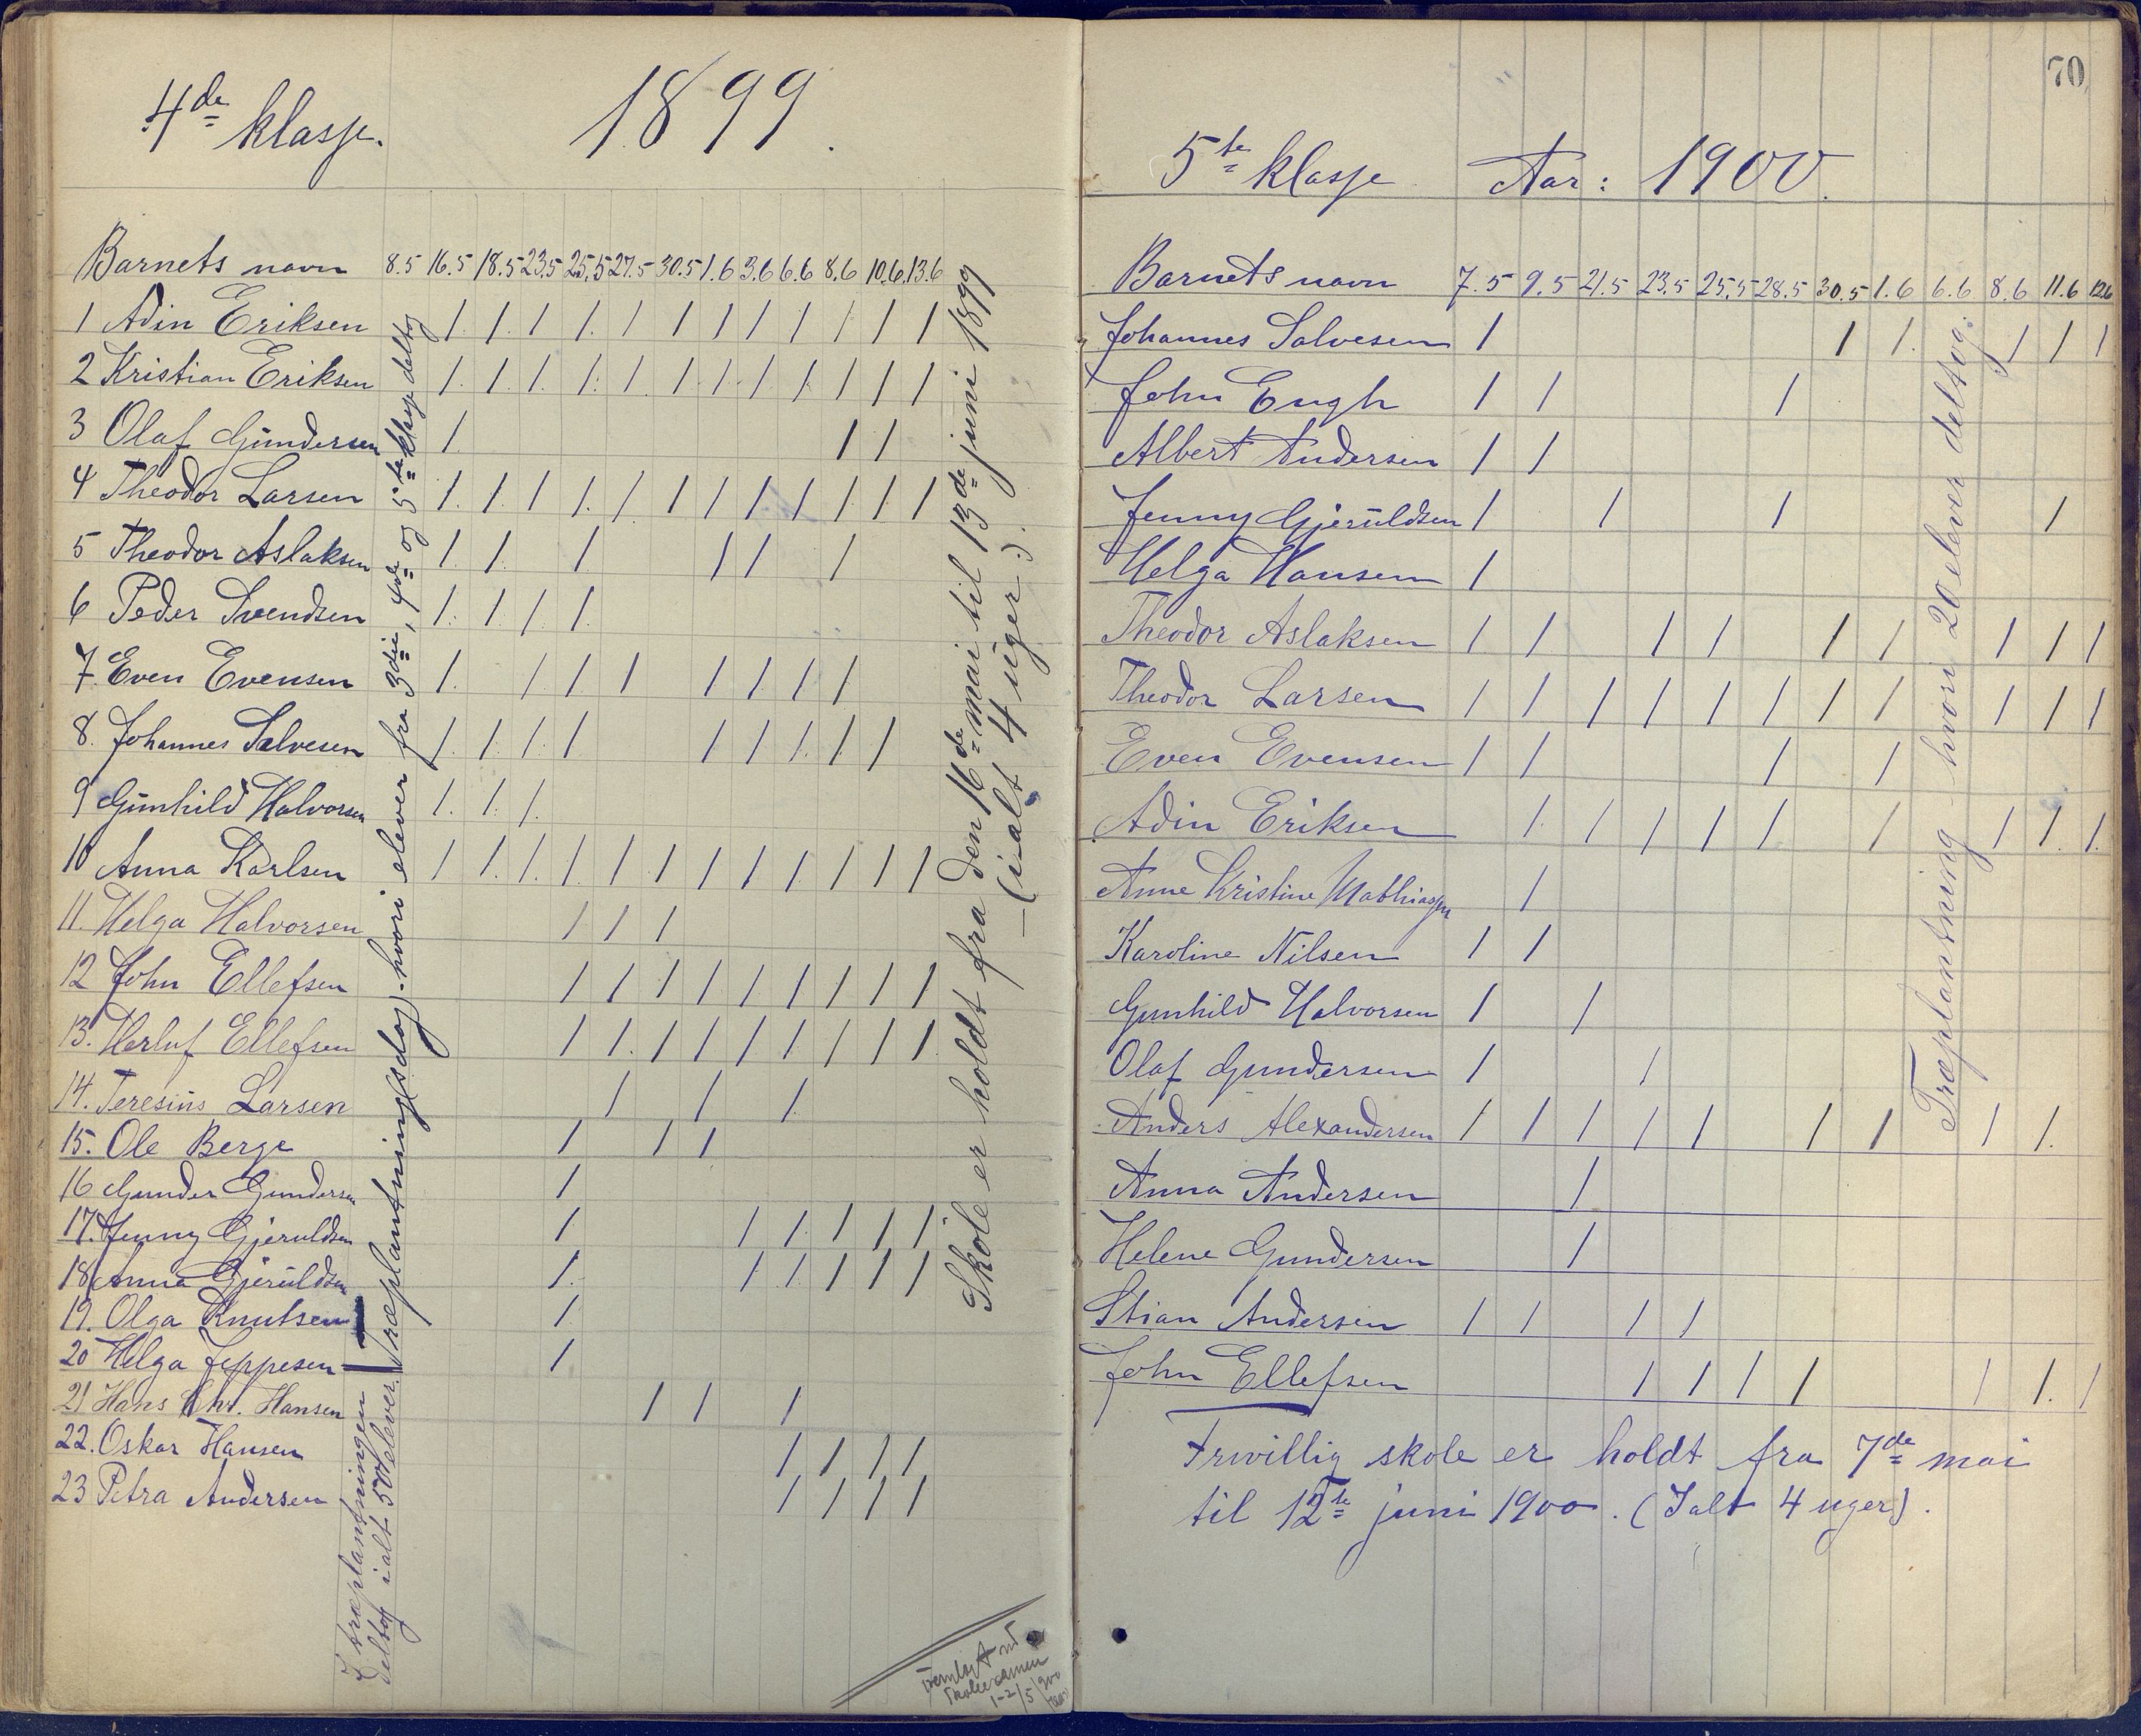 4de klasse.
1899.
Barnets navn 8.5 16.5 18.5 23.5 25.5 27.5 30.5 1.6 3.6 6.6 8.6 10.6 13.6
1 Adin Eriksen / / / / / / / / / / / /
2 Kristian Eriksen / / / / / / / / / / / /
3 Olaf Gundersen / / /
4 Theodor Larsen / / / / / / / / / / / /
5 Theodor Aslaksen / / / / / /
6 Peder Svendsen / / / /
7. Even Evensen / / / / / / / /
8. Johannes Salvesen / / / / / / / / /
9 Gunhild Halvorsen / / /
10 Anna Karlsen / / / / / / / / / / / /
11. Helga Halvorsen / / /
12 John Ellefsen / / / / / / / / /
13. Herluf Ellefsen / / / / / / / / /
14. Teresius Larsen / / /
15. Ole Berge / / /
16 Gunder Gundersen /
17. Jenny Gjeruldsen / / / / / /
18 Anna Gjeruldsen / / / / / /
19. Olga Knutsen /
20 Helga Jeppesen /
21 Hans Chr. Hansen / / /
22. Oskar Hansen / / / /
23 Petra Andersen / / / /
Træplantningsdag - hvori elever fra 3die, 4de og 5te klasse deltog
I træplantningen
deltog ialt 50 elever.
Skole er holdt fra den 16de mai til 13de juni 1899
(ialt 4 uger).
Fremlagt ved
Skoleexamen
1-2/5 1900
70
5te klasse Aar: 1900.
Barnets navn 7.5 9.5 21.5 23.5 25.5 28.5 30.5 1.6 6.6 8.6 11.6 12.6
Johannes Salvesen / / / / / /
John Engh / / /
Albert Andersen / /
Jenny Gjeruldsen / / / /
Helga Hansen /
Theodor Aslaksen / / / / / / / / /
Theodor Larsen / / / / / / / / / / /
Even Evensen / / / /
Adin Eriksen / / / / / / / / /
Anne Kristine Mathiassen /
Karoline Nilsen / /
Gunhild Halvorsen / /
Olaf Gundersen / /
Anders Alexandersen / / / / / / / / /
Anna Andersen /
Helene Gundersen /
Stian Andersen / / / /
John Ellefsen / / / / / / /
Træplantning - hvori 20 elever deltog.
Frivillig skole er holdt fra 7de mai
til 12te juni 1900. (Ialt 4 uger).